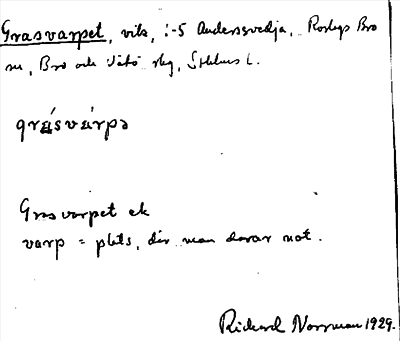 Grasvarpet, vik, i-5 Andersvedja, Roslags Bro
sn, Bro och Vätö skg, Sthlms l.
grásvárpə
Grasvarpet ek
varp = plats, där man drar not.
Richard Norrman 1929.